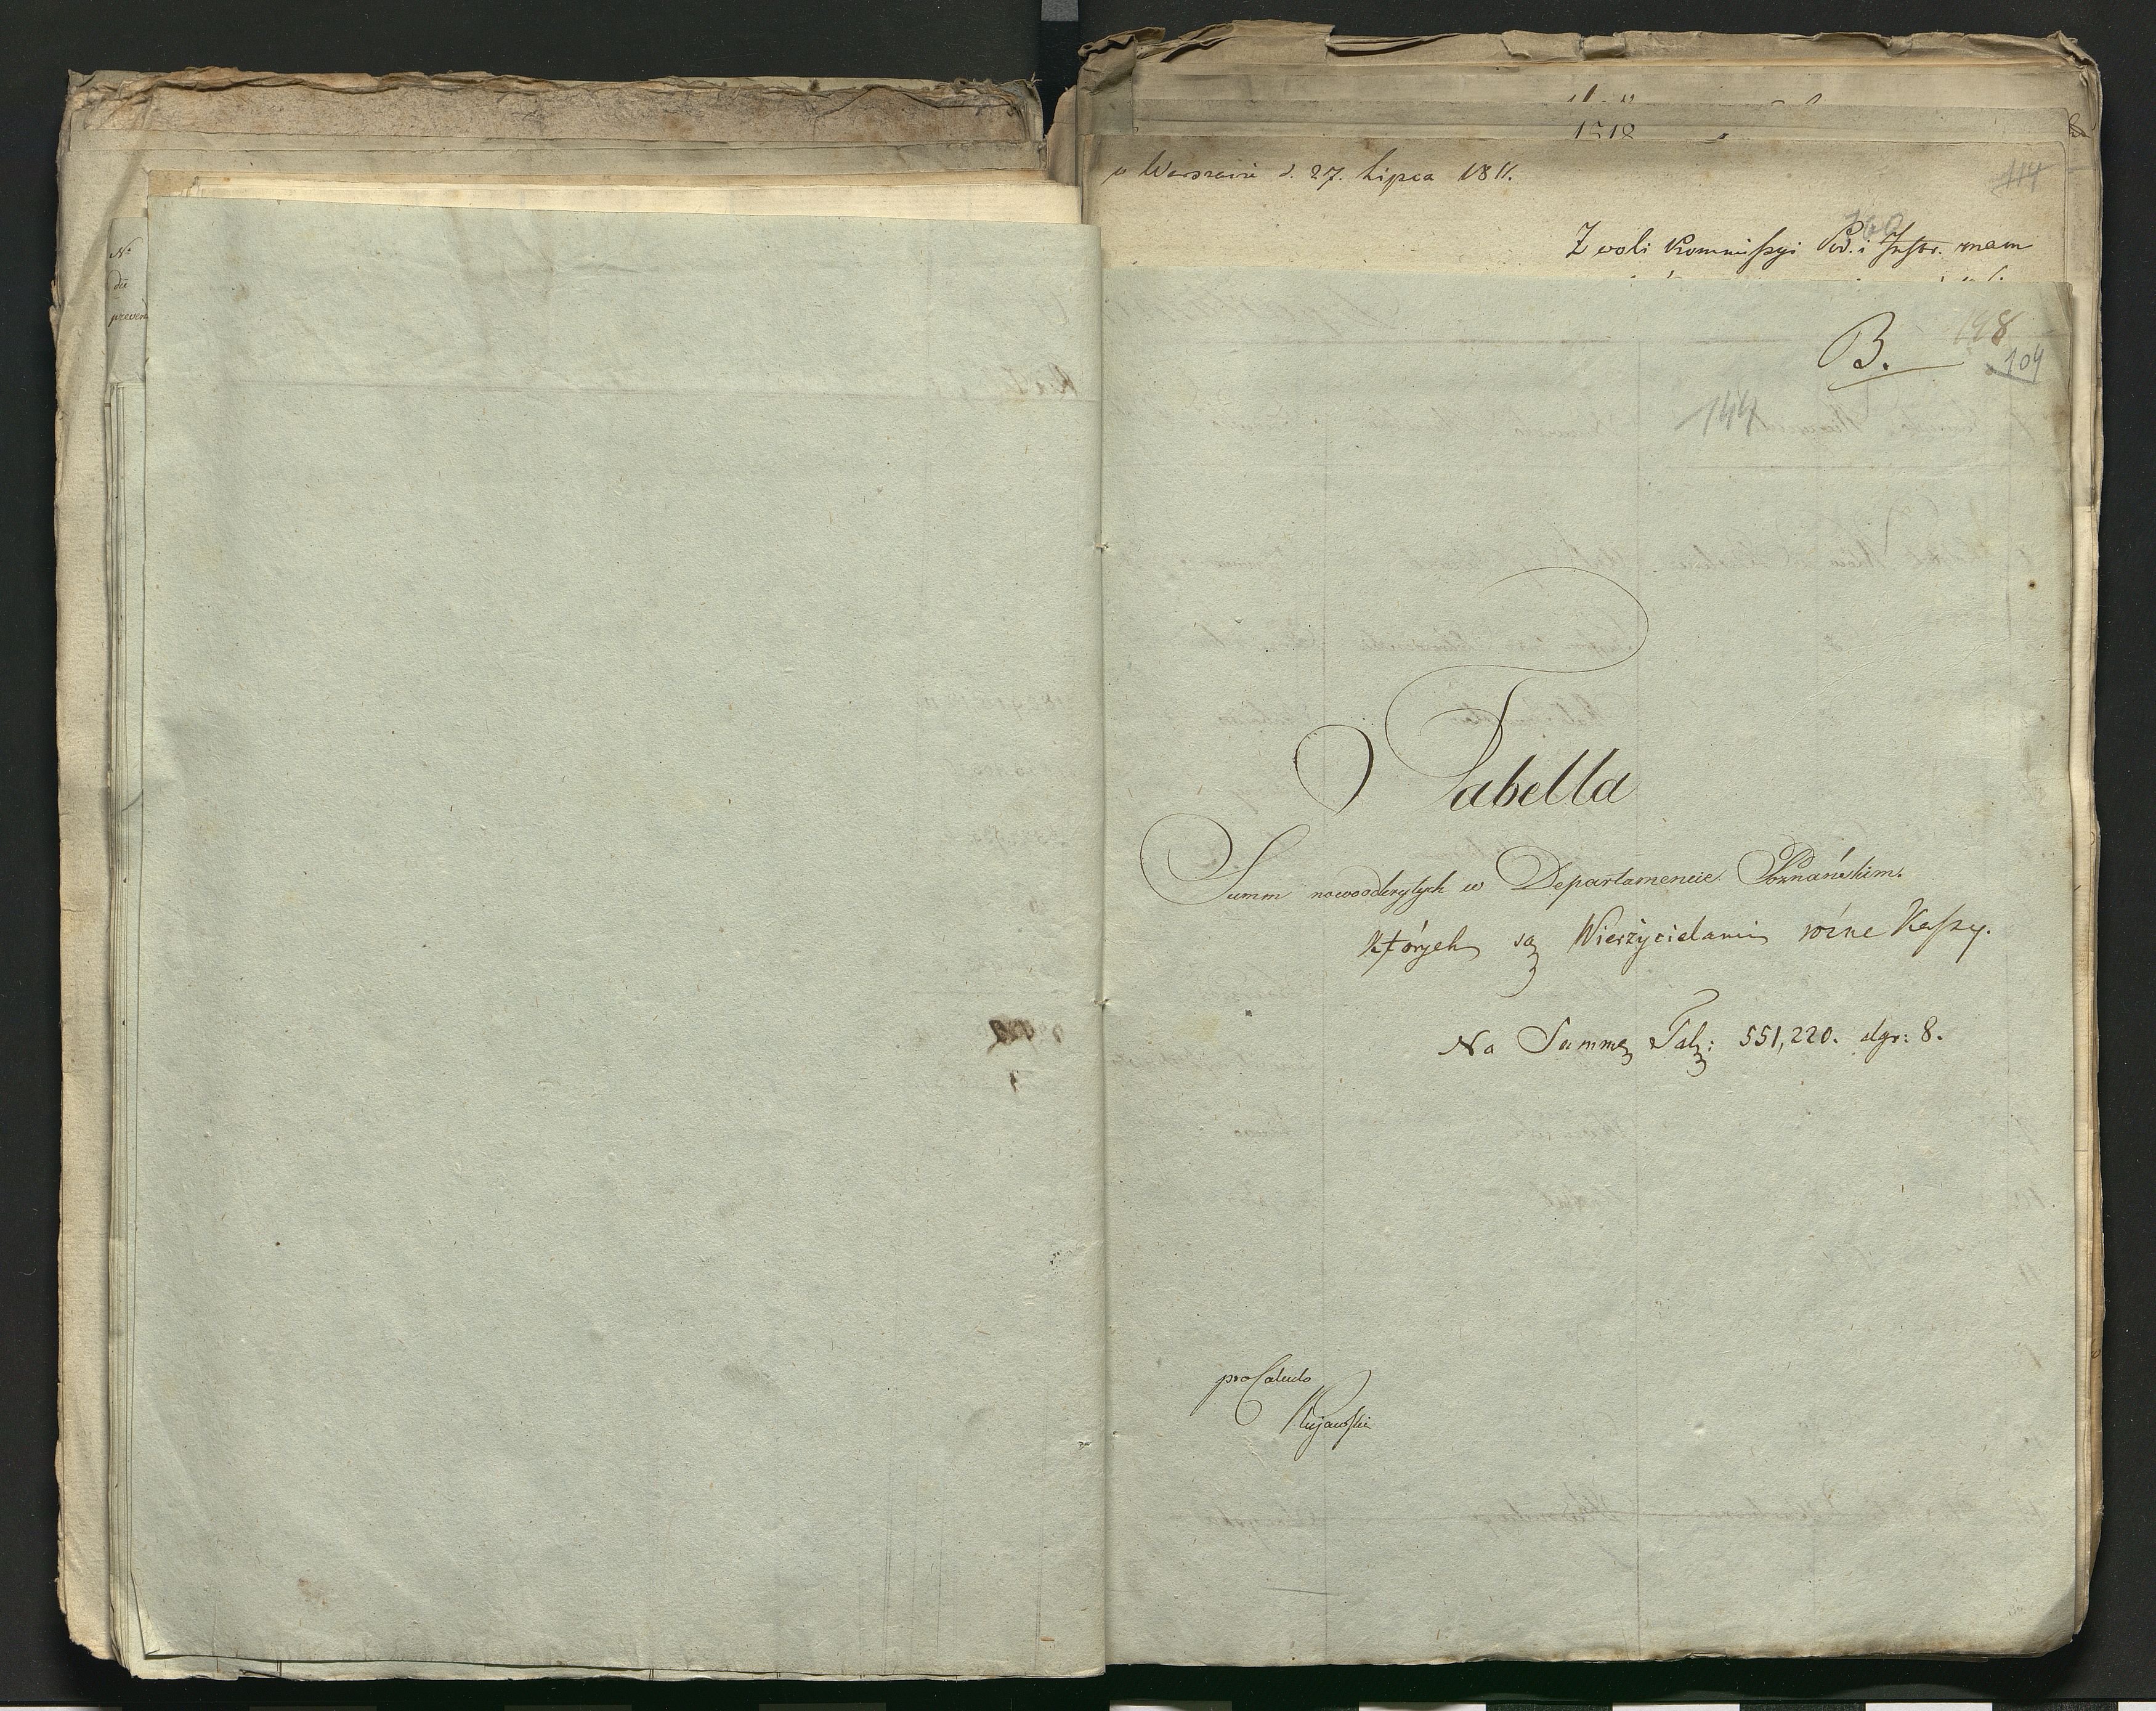 No
1518
w Warszawie d. 27. Lipca 1811.
114
Z woli Kommissyi Pod. i Instr. mam
B.
198
104
144
Tabella
Summ nowoodkrytych w Departamencie Poznańskim.
których są Wierzycielami różne Kassy.
Na Summę Tal: 551,220. dgr: 8.
pro Calculo
Kujawski